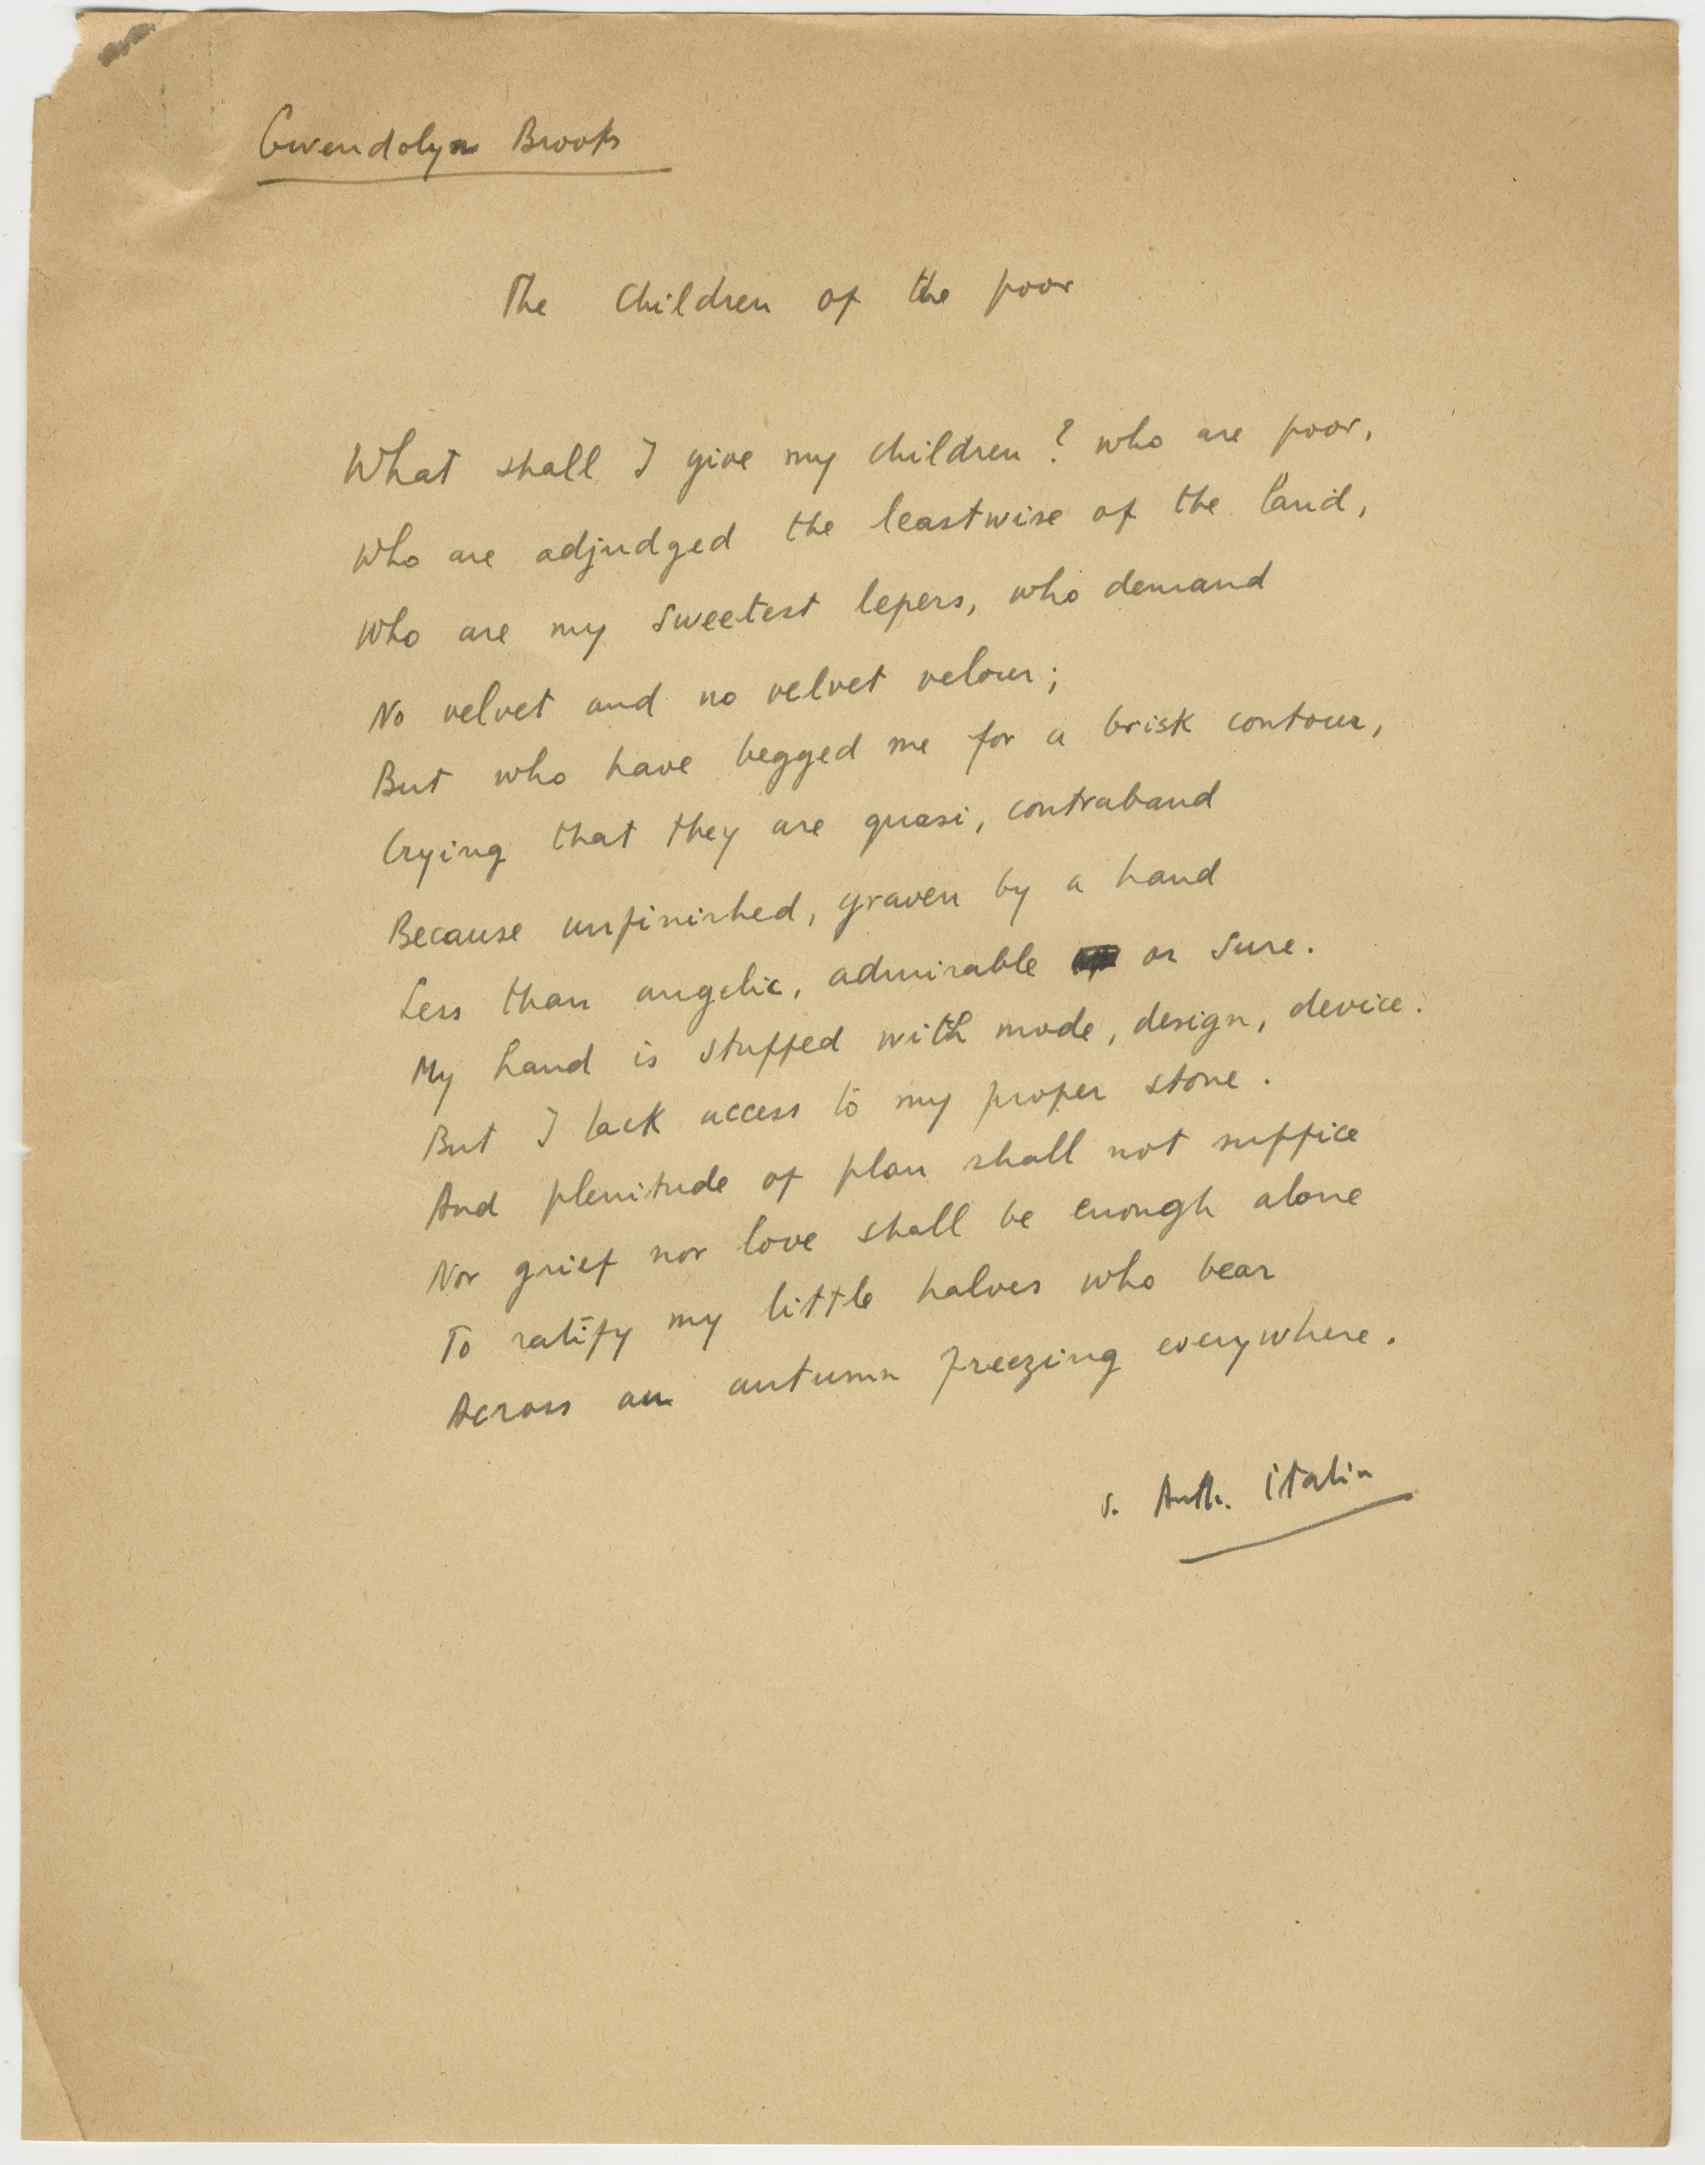 Gwendolyn Brooks
The Children of the poor
What shall I give my children? who are poor,
Who are adjudged the leastwise of the land,
Who are my sweetest lepers, who demand
No velvet and no velvet velour;
But who have begged me for a brisk contour,
Crying that they are quasi, contraband
Because unfinished, graven by a hand
Less than angelic, admirable or sure.
My hand is stuffed with mode, design, device.
But I lack access to my proper stone.
And plenitude of plan shall not suffice
Nor grief nor love shall be enough alone
To ratify my little halves who bear
Across an autumn freezing everywhere.
s. Anth. italia